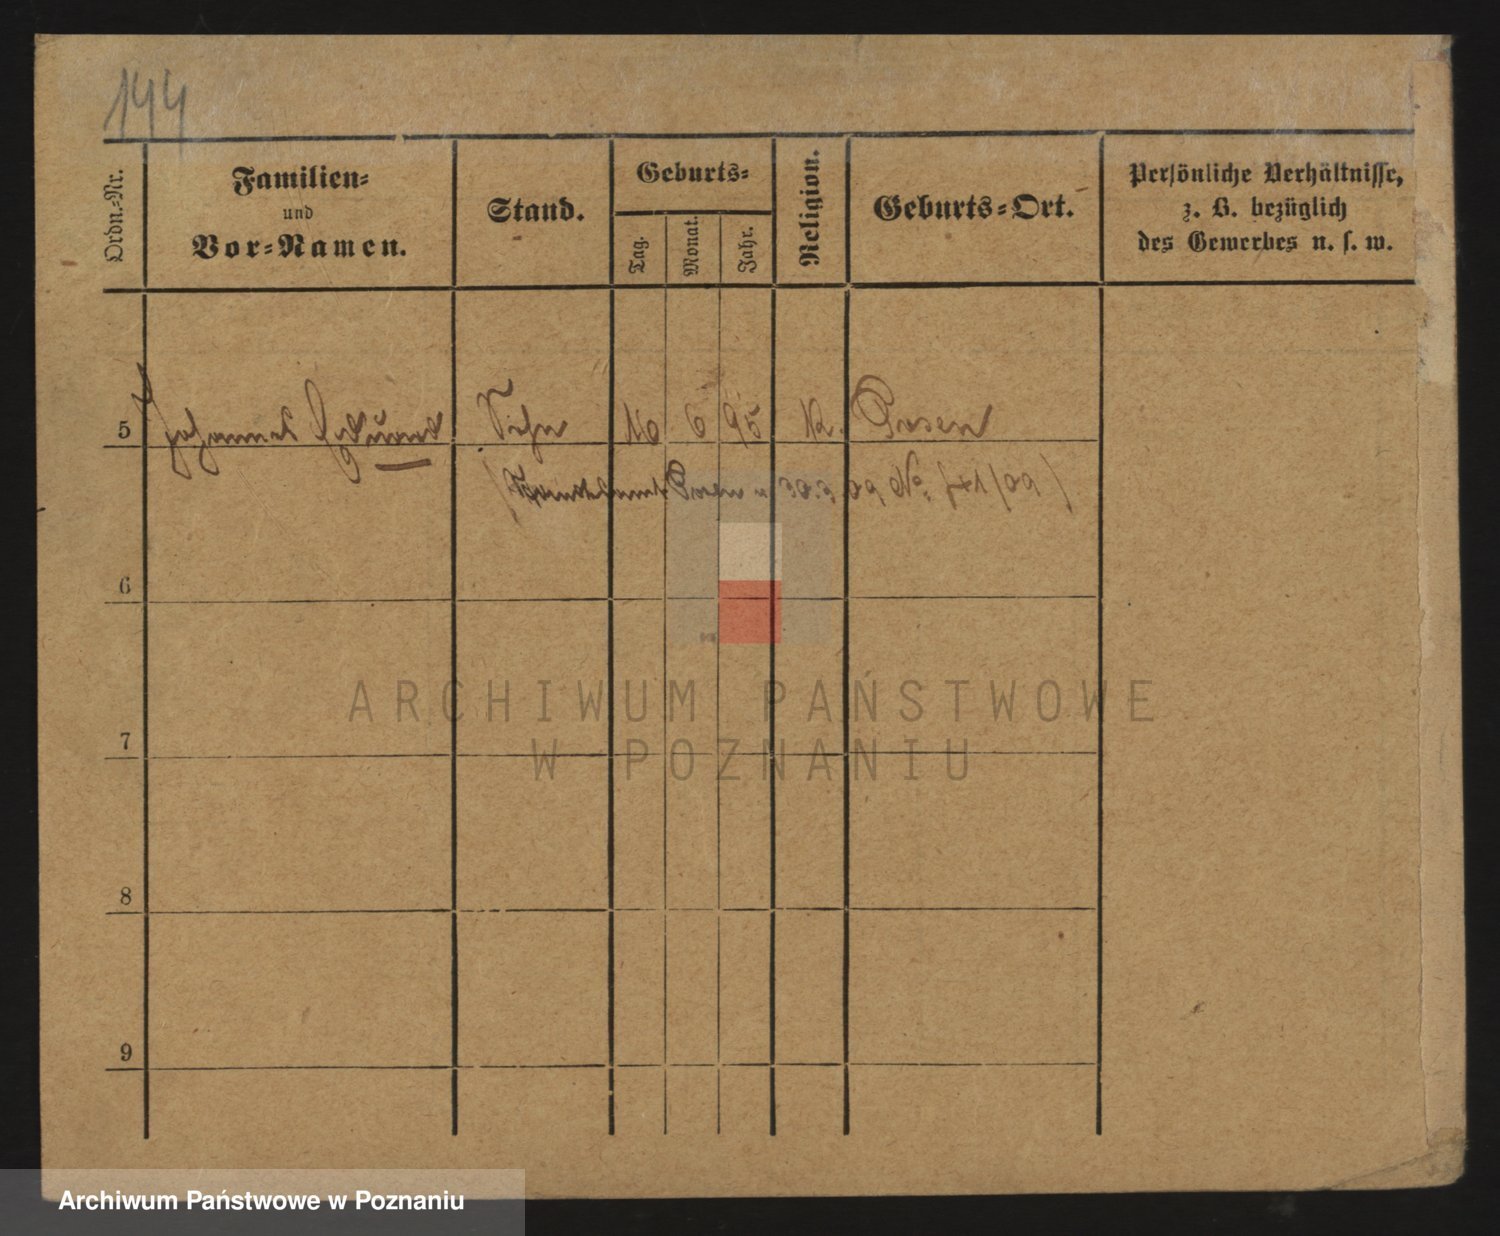 144
Ordn.-Nr.
Familien-
und
Vor-Namen.
Stand.
Geburts-
Tag.
Monat.
Jahr.
Religion.
Geburts-Ort.
Persönliche Verhältnisse,
z. B. bezüglich
des Gewerbes u. s. w.
5 Johannes Eduard Sohn 16 6 95 K. Posen
(Standesamt Posen 30.3.09 No. /09)
6
7
8
9
ARCHIWUM PAŃSTWOWE
W POZNANIU
Archiwum Państwowe w Poznaniu